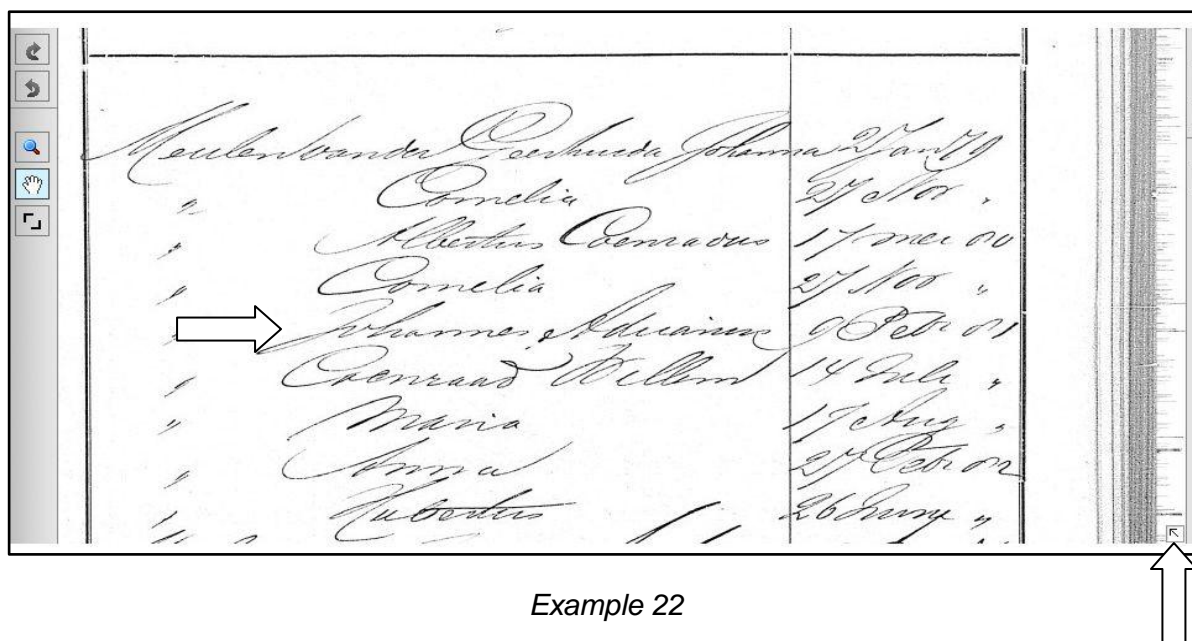 Meulen van der Geertruida Johanna 2 Jan 79
" Cornelia 27 Nov "
" Albertus Coenradus 17 mei 80
" Cornelia 27 Nov "
" Johannes Adrianus 9 Febr 81
" Coenraad Willem 14 Juli "
" Maria 17 Aug "
" Anna 27 Febr 82
" Hubertus 26 "
Example 22